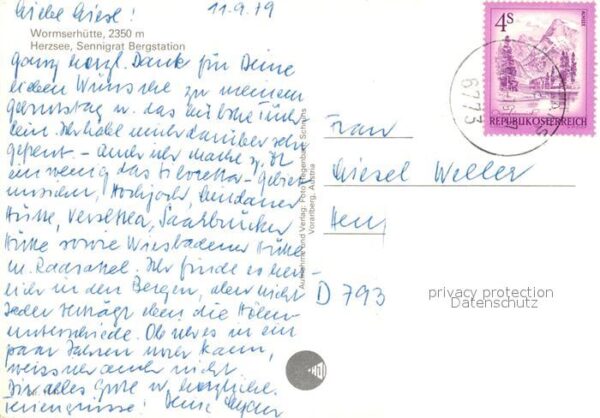 Liebe Giesel! 11.9.79
Wormserhütte, 2350 m
Herzsee, Sennigrat Bergstation
Ganz herzl. Dank für Deine
lieben Wünsche zu meinem
Geburtstag u. das hübsche
lein. Ich habe mich darüber sehr
gefreut. - Auch ich mache z. Zt
ein wenig das Silvretta-Gebiet
unsicher, Hochjoch, Lindauer
Hütte, Versettla, Saarbrücker
Hütte sowie Wiesbadener Hütte
m. Radsattel. Ich finde es herr-
lich in den Bergen, aber nicht
Jeder verträgt eben die Höhen-
unterschiede. Ob ich es in ein
paar Jahren noch kann,
weiss ich auch nicht
Dir alles Gute u. herzliche
Feriengrüsse! Deine
Aufnahme und Verlag: Foto Hegenbart, Schruns
Vorarlberg, Austria
4S
REPUBLIK ÖSTERREICH
6773
Frau
Giesel Weller
D 793
privacy protection
Datenschutz